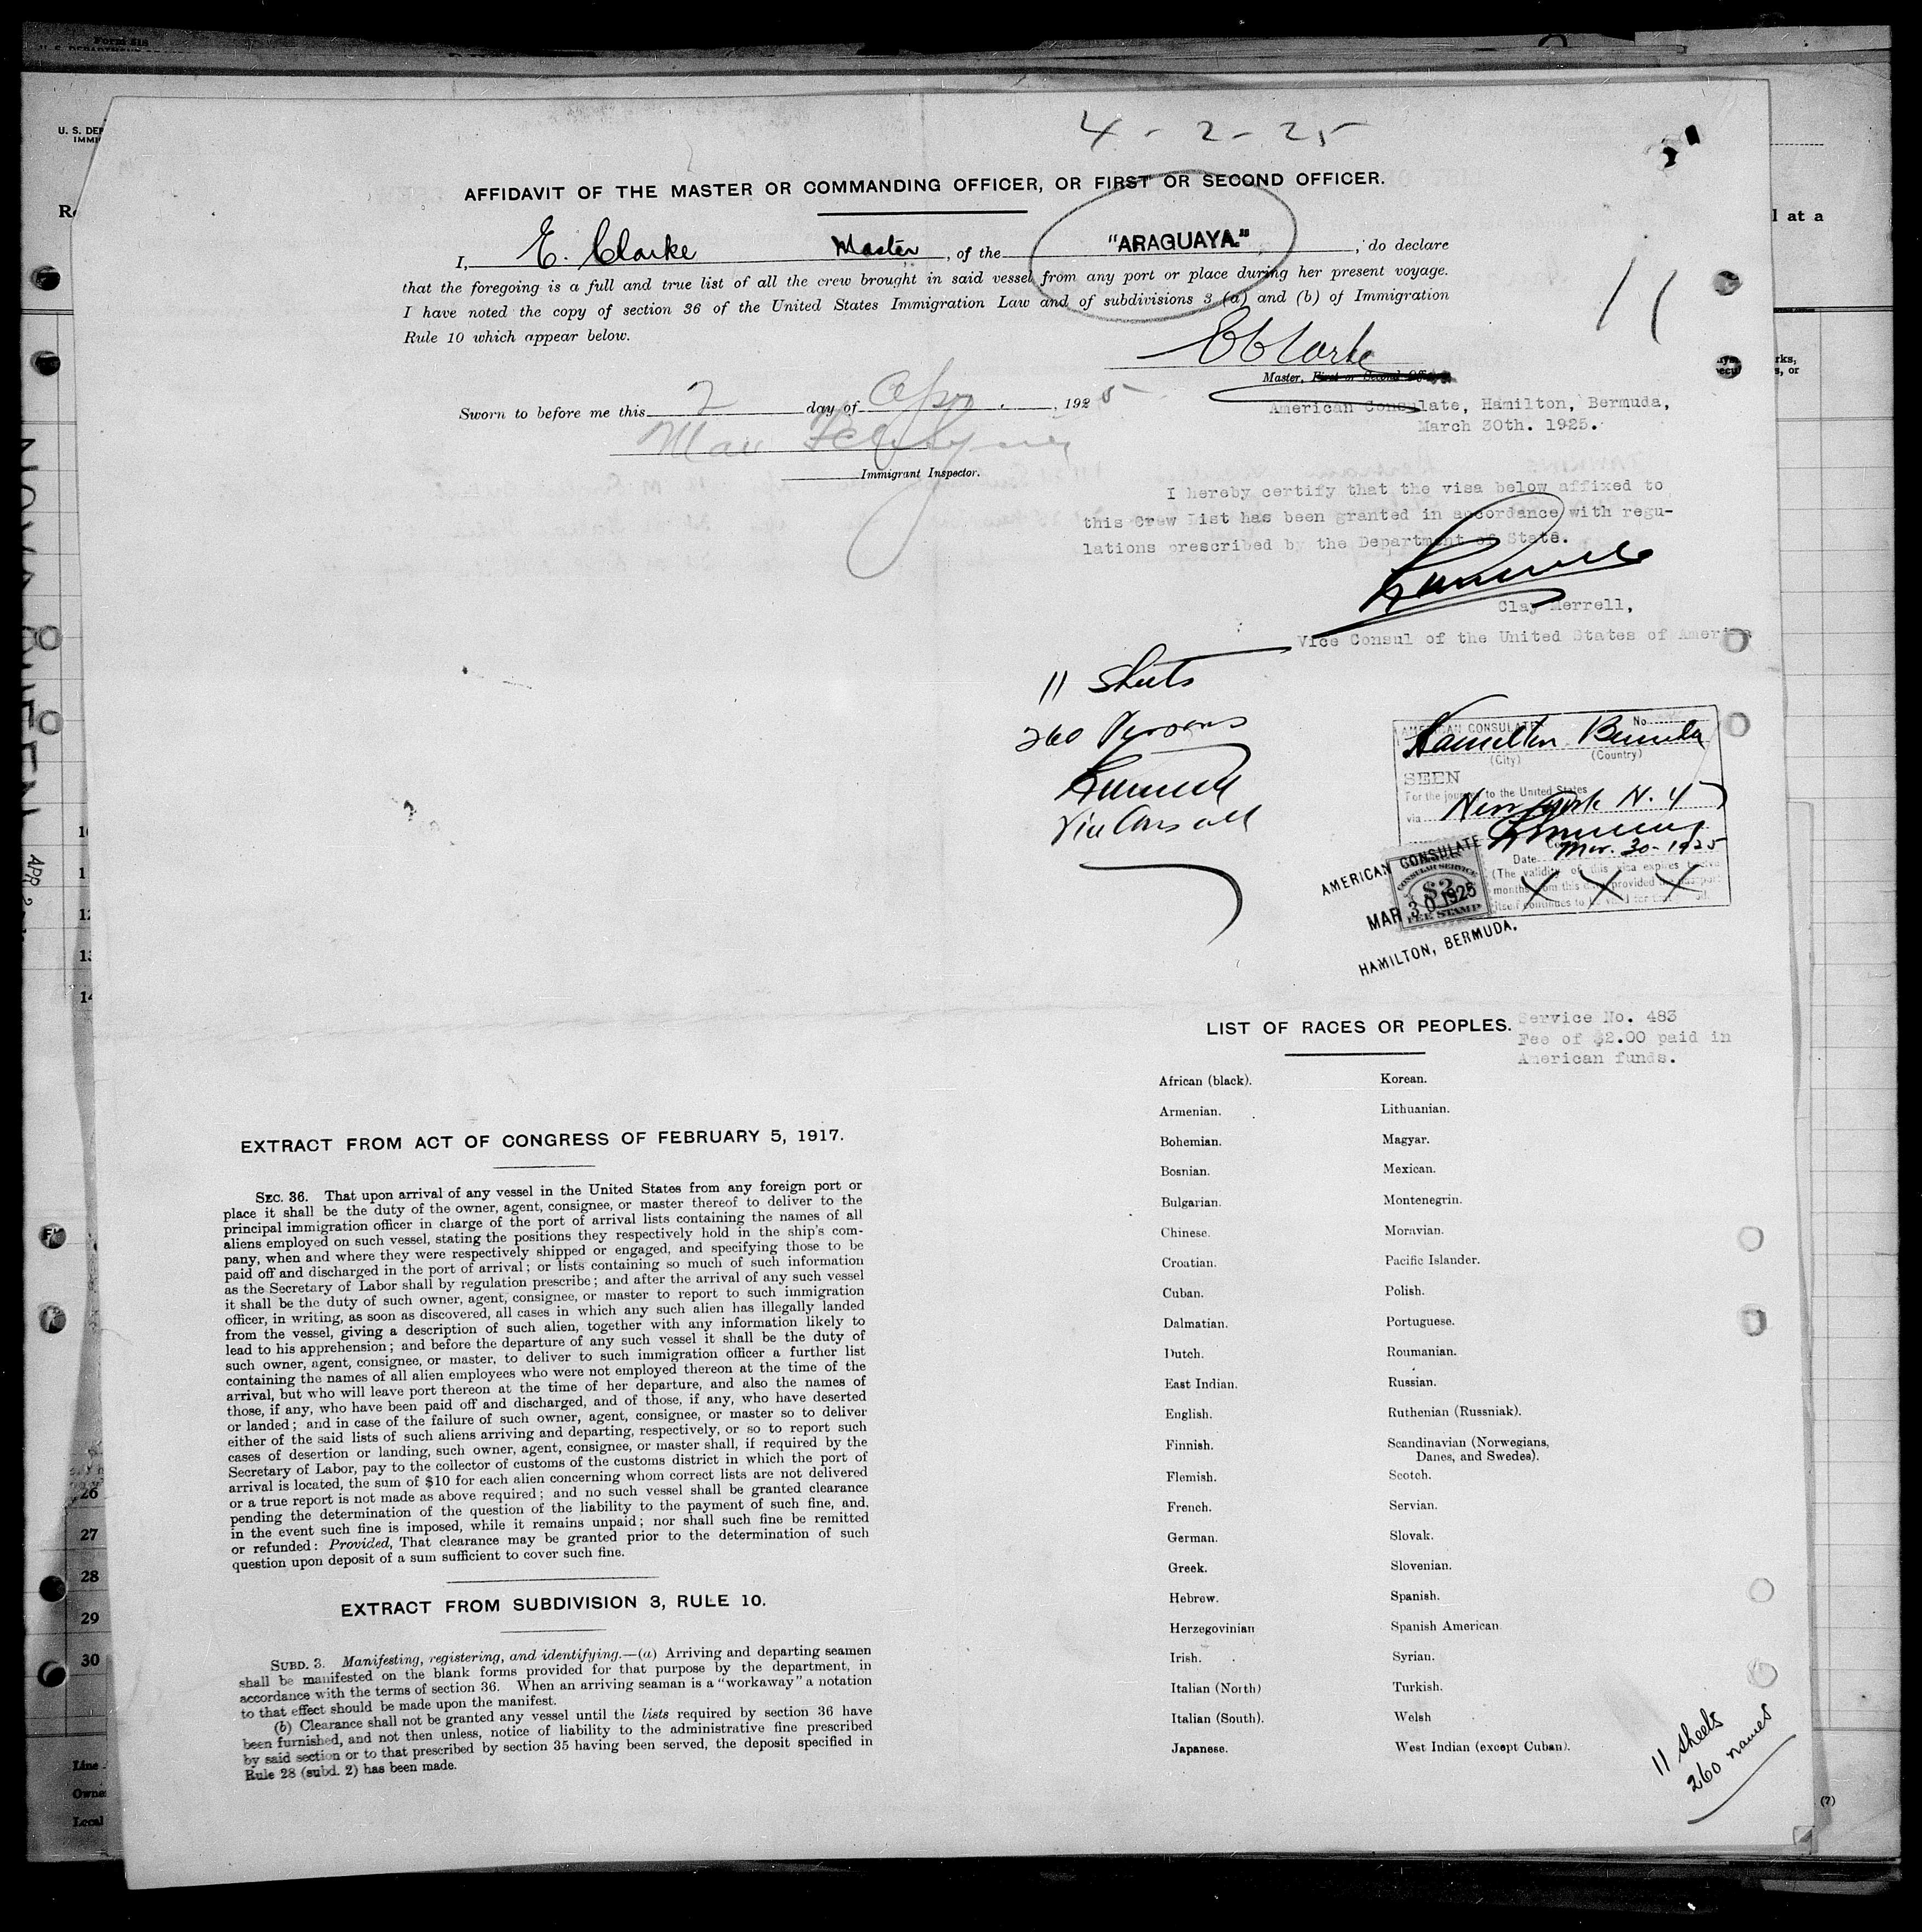 Form 818
U. S. DEP
IMMI
4-2-25
AFFIDAVIT OF THE MASTER OR COMMANDING OFFICER, OR FIRST OR SECOND OFFICER.
I, E. Clarke Master, of the "ARAGUAYA.", do declare
that the foregoing is a full and true list of all the crew brought in said vessel from any port or place during her present voyage.
I have noted the copy of section 36 of the United States Immigration Law and of subdivisions 3 (a) and (b) of Immigration
Rule 10 which appear below.
11
E Clarke
Master, First or Second Officer.
Sworn to before me this 2 day of Apr, 1925
Immigrant Inspector.
American Consulate, Hamilton, Bermuda,
March 30th. 1925.
I hereby certify that the visa below affixed to
this Crew List has been granted in accordance with regu-
lations prescribed by the Department of State.
Clay Merrell,
Vice Consul of the United States of America
11 Sheets
260 Persons
Vice Consul
AMERICAN CONSULATE No.
Hamilton Bermuda
(City) (Country)
SEEN
For the journey to the United States
via New York N.Y
Date Mar. 30-1925
(The validity of this visa expires twelve
months from this date provided the passport
itself continues to be valid for that period.
X X X
AMERICAN CONSULATE
CONSULAR SERVICE
$2
FEE STAMP
MAR 30 1925
HAMILTON, BERMUDA.
LIST OF RACES OR PEOPLES.
Service No. 483
Fee of $2.00 paid in
American funds.
African (black). Korean.
Armenian. Lithuanian.
Bohemian. Magyar.
Bosnian. Mexican.
Bulgarian. Montenegrin.
Chinese. Moravian.
Croatian. Pacific Islander.
Cuban. Polish.
Dalmatian. Portuguese.
Dutch. Roumanian.
East Indian. Russian.
English. Ruthenian (Russniak).
Finnish. Scandinavian (Norwegians,
Danes, and Swedes).
Flemish. Scotch.
French. Servian.
German. Slovak.
Greek. Slovenian.
Hebrew. Spanish.
Herzegovinian Spanish American
Irish. Syrian.
Italian (North) Turkish.
Italian (South). Welsh
Japanese. West Indian (except Cuban).
11 sheets
260 names
EXTRACT FROM ACT OF CONGRESS OF FEBRUARY 5, 1917.
SEC. 36. That upon arrival of any vessel in the United States from any foreign port or
place it shall be the duty of the owner, agent, consignee, or master thereof to deliver to the
principal immigration officer in charge of the port of arrival lists containing the names of all
aliens employed on such vessel, stating the positions they respectively hold in the ship's com-
pany, when and where they were respectively shipped or engaged, and specifying those to be
paid off and discharged in the port of arrival; or lists containing so much of such information
as the Secretary of Labor shall by regulation prescribe; and after the arrival of any such vessel
it shall be the duty of such owner, agent, consignee, or master to report to such immigration
officer, in writing, as soon as discovered, all cases in which any such alien has illegally landed
from the vessel, giving a description of such alien, together with any information likely to
lead to his apprehension; and before the departure of any such vessel it shall be the duty of
such owner, agent, consignee, or master, to deliver to such immigration officer a further list
containing the names of all alien employees who were not employed thereon at the time of the
arrival, but who will leave port thereon at the time of her departure, and also the names of
those, if any, who have been paid off and discharged, and of those, if any, who have deserted
or landed; and in case of the failure of such owner, agent, consignee, or master so to deliver
either of the said lists of such aliens arriving and departing, respectively, or so to report such
cases of desertion or landing, such owner, agent, consignee, or master shall, if required by the
Secretary of Labor, pay to the collector of customs of the customs district in which the port of
arrival is located, the sum of $10 for each alien concerning whom correct lists are not delivered
or a true report is not made as above required; and no such vessel shall be granted clearance
pending the determination of the question of the liability to the payment of such fine, and,
in the event such fine is imposed, while it remains unpaid; nor shall such fine be remitted
or refunded: Provided, That clearance may be granted prior to the determination of such
question upon deposit of a sum sufficient to cover such fine.
EXTRACT FROM SUBDIVISION 3, RULE 10.
SUBD. 3. Manifesting, registering, and identifying.—(a) Arriving and departing seamen
shall be manifested on the blank forms provided for that purpose by the department, in
accordance with the terms of section 36. When an arriving seaman is a "workaway" a notation
to that effect should be made upon the manifest.
(b) Clearance shall not be granted any vessel until the lists required by section 36 have
been furnished, and not then unless, notice of liability to the administrative fine prescribed
by said section or to that prescribed by section 35 having been served, the deposit specified in
Rule 28 (subd. 2) has been made.
l at a
rks,
s, or
APR 2
26
27
28
29
30
Line
Owne
Local
(7)